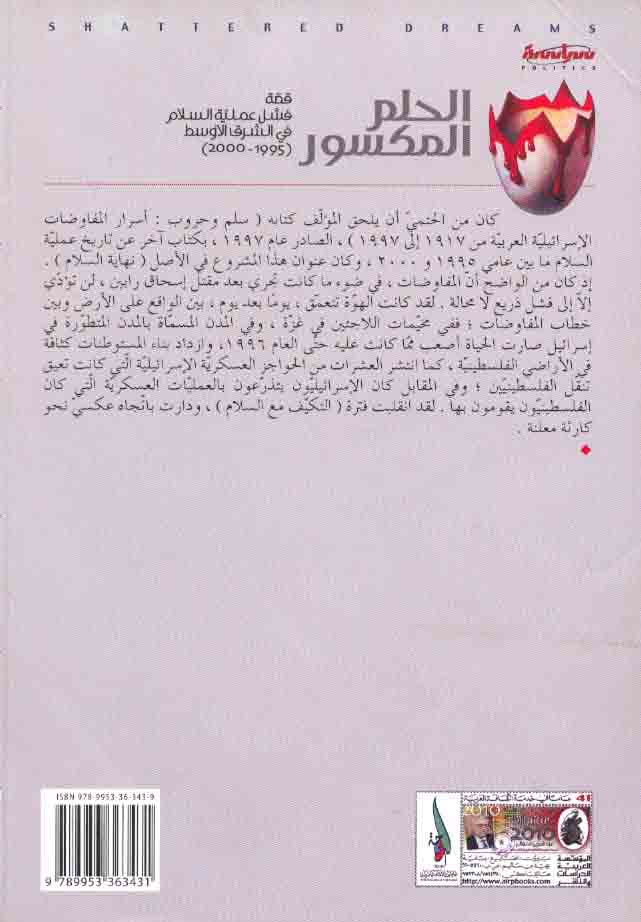 SHATTERED DREAMS
سياسة
POLITICS
الحلم
المكسور
قصّة
فشل عمليّة السلام
في الشرق الأوسط
(1995-2000)
كان من الحتميّ أن يلحق المؤلّف كتابه ( سلم وحروب : أسرار المفاوضات
الإسرائيليّة العربيّة من ١٩١٧ إلى ١٩٩٧ ) ، الصادر عام ١٩٩٧ ، بكتاب آخر عن تاريخ عمليّة
السلام ما بين عامي ١٩٩٥ و ٢٠٠٠ ، وكان عنوان هذا المشروع في الأصل ( نهاية السلام ) .
إذ كان من الواضح أنّ المفاوضات ، في ضوء ما كانت تجري بعد مقتل إسحاق رابين ، لن تؤدّي
إلاّ إلى فشل ذريع لا محالة . لقد كانت الهوّة تتعمّق ، يومًا بعد يوم ، بين الواقع على الأرض وبين
خطاب المفاوضات ؛ ففي مخيّمات اللاجئين في غزّة ، وفي المدن المسمّاة بالمدن المتطوّرة في
إسرائيل صارت الحياة أصعب ممّا كانت عليه حتّى العام ١٩٩٦ ، وازداد بناء المستوطنات كثافة
في الأراضي الفلسطينيّة ، كما انتشر العشرات من الحواجز العسكريّة الإسرائيليّة الّتي كانت تعيق
تنقّل الفلسطينيّين ؛ وفي المقابل كان الإسرائيليّون يتذرّعون بالعمليّات العسكريّة الّتي كان
الفلسطينيّون يقومون بها . لقد انقلبت فترة ( التكيّف مع السلام ) ، ودارت باتّجاه عكسي نحو
كارثة معلنة .
ISBN 978-9953-36-343-9
9 789953 363431
41
2010
2010
المؤسسة
العربية
للدراسات
والنشر
http://www.airpbooks.com